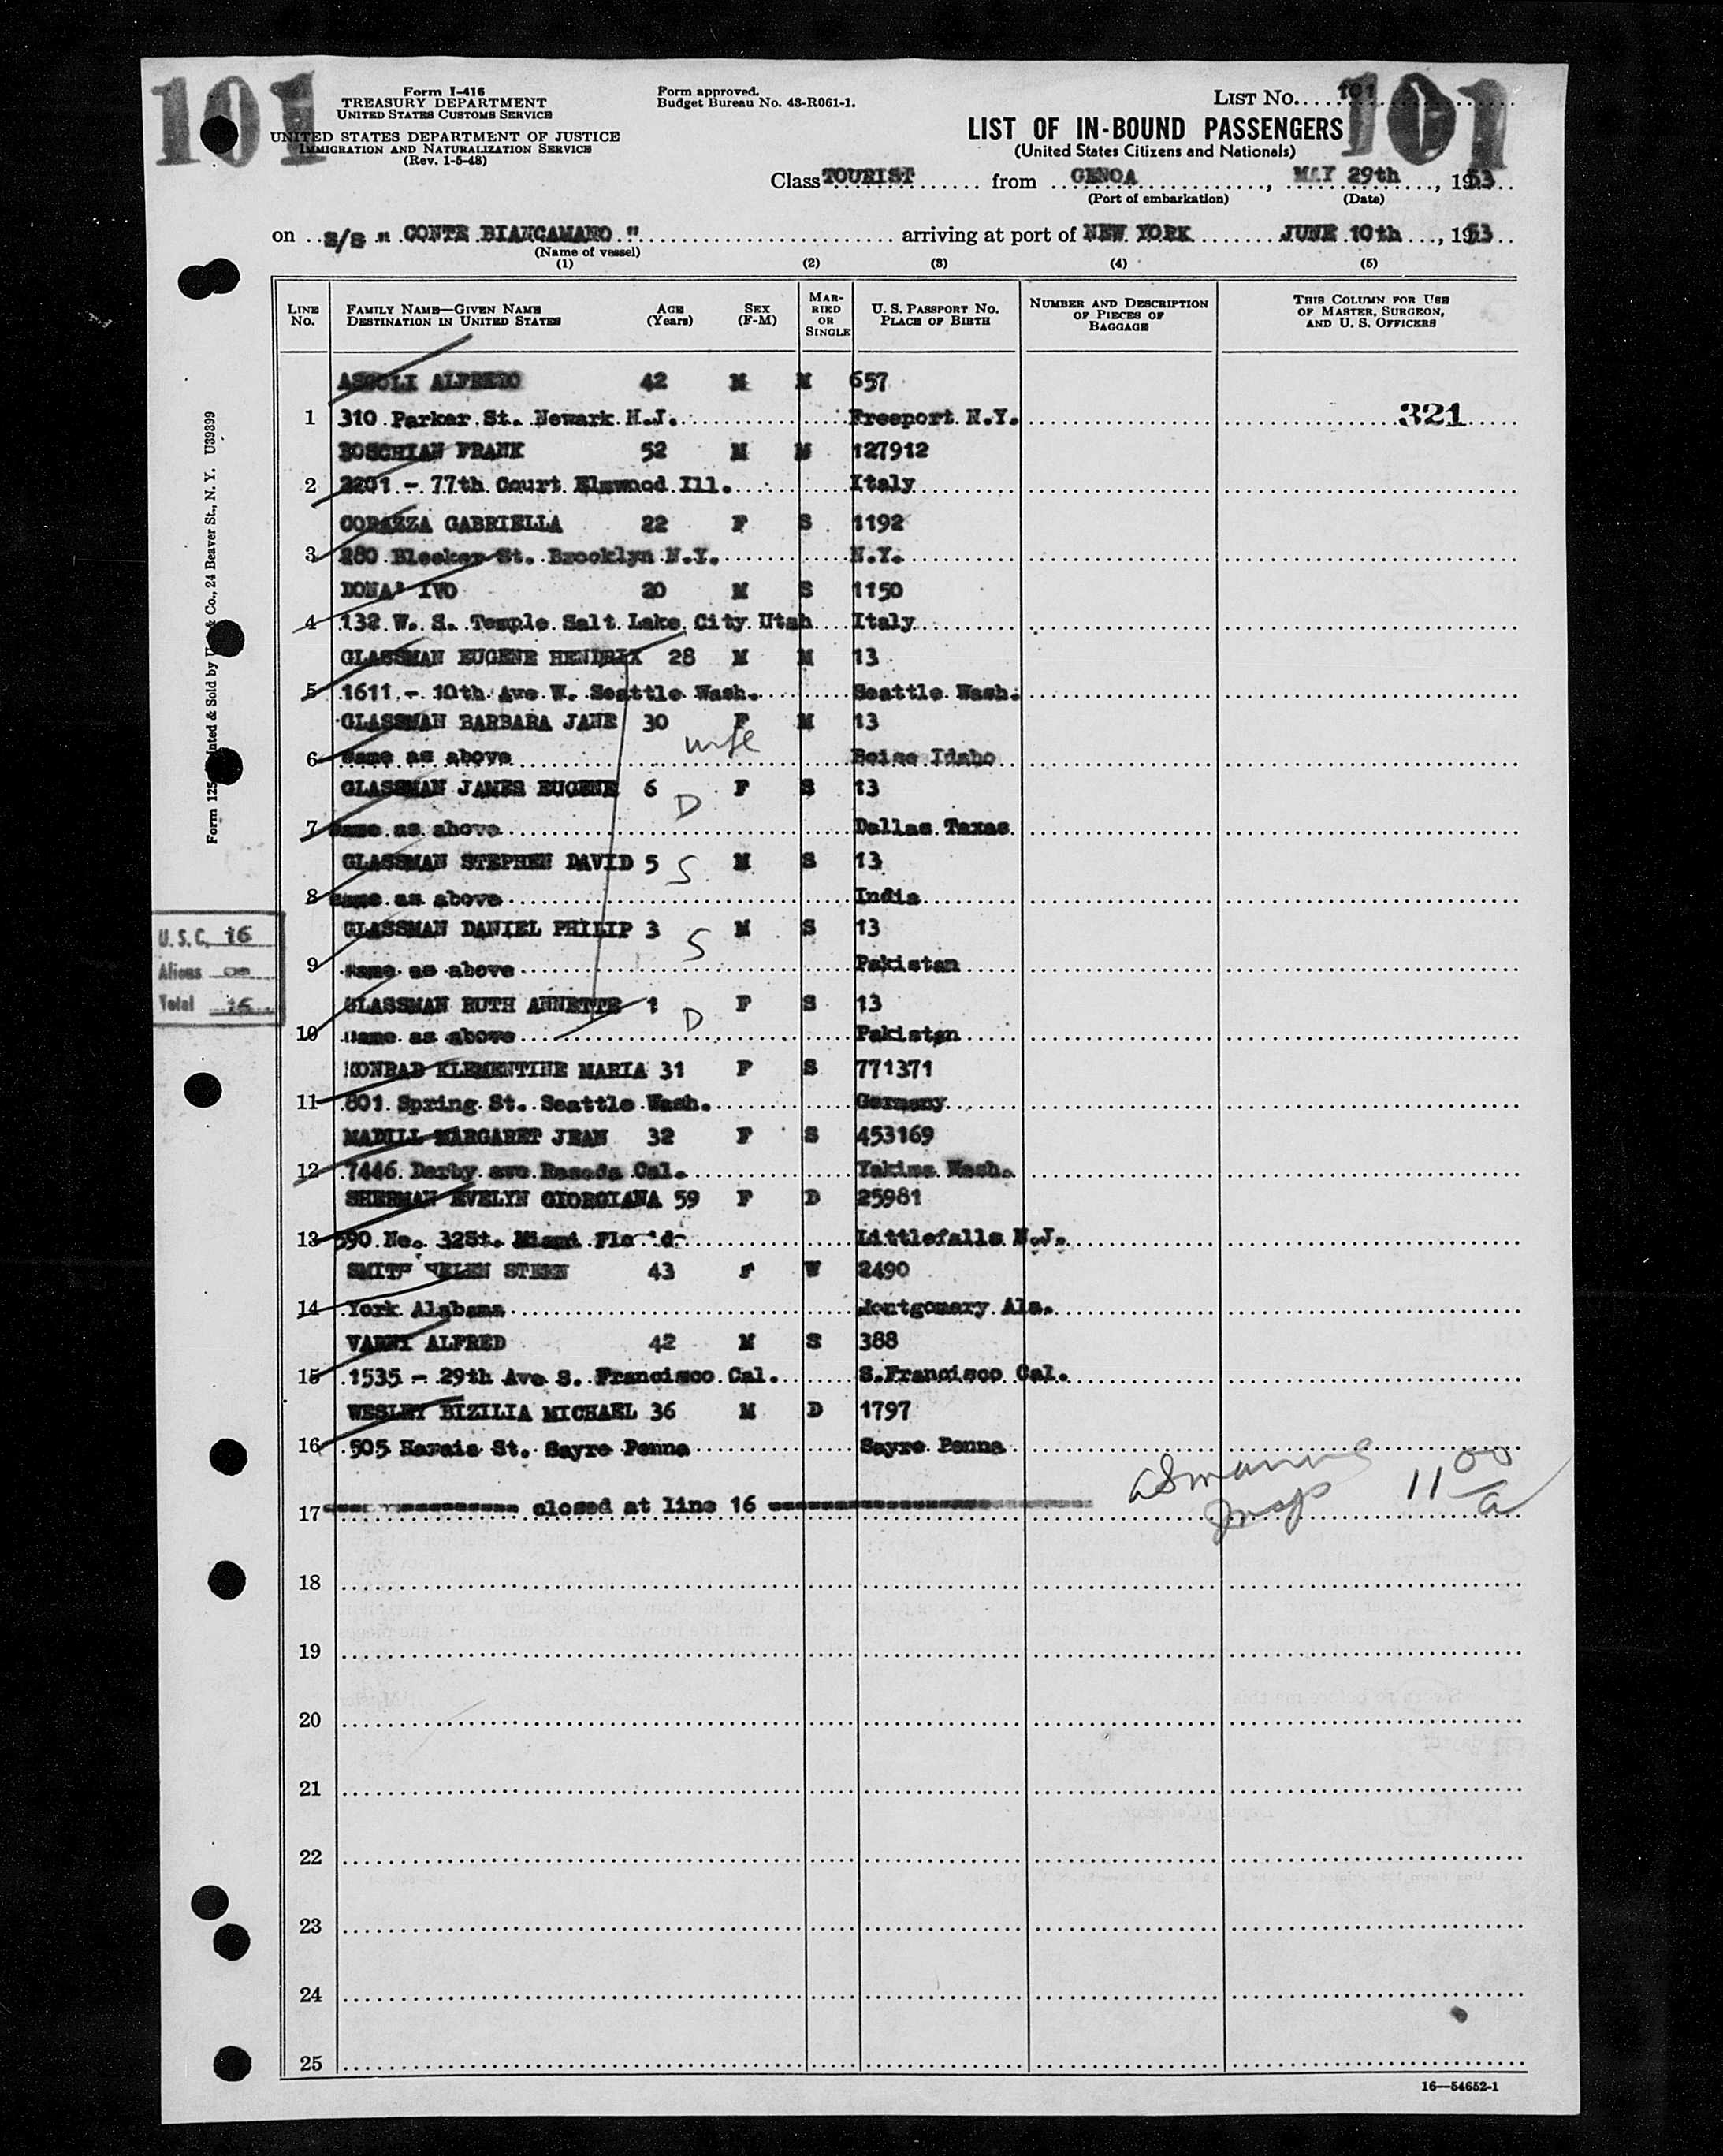 101
Form I-416
TREASURY DEPARTMENT
UNITED STATES CUSTOMS SERVICE
UNITED STATES DEPARTMENT OF JUSTICE
IMMIGRATION AND NATURALIZATION SERVICE
(Rev. 1-5-48)
Form approved.
Budget Bureau No. 43-R061-1.
LIST NO. 101
101
LIST OF IN-BOUND PASSENGERS
(United States Citizens and Nationals)
Class TOURIST from GENOA, MAY 29th, 1953
(Port of embarkation) (Date)
on S/S " CONTE BIANCAMANO " arriving at port of NEW YORK JUNE 10th, 1953
(Name of vessel)
(1) (2) (3) (4) (5)
LINE No. FAMILY NAME—GIVEN NAME DESTINATION IN UNITED STATES AGE (Years) SEX (F-M) MARRIED OR SINGLE U. S. PASSPORT NO. PLACE OF BIRTH NUMBER AND DESCRIPTION OF PIECES OF BAGGAGE THIS COLUMN FOR USE OF MASTER, SURGEON, AND U. S. OFFICERS
ASCOLI ALFREDO 42 M M 657
1 310 Parker St. Newark N.J. Freeport N.Y. 321
BOSCHIAN FRANK 52 M M 127912
2 2201 - 77th Court Elmwood Ill. Italy
CORAZZA GABRIELLA 22 F S 1192
3 280 Bleeker St. Brooklyn N.Y. N.Y.
DONA' IVO 20 M S 1150
4 132 W. S. Temple Salt Lake City Utah Italy
GLASSMAN EUGENE HENDRIX 28 M M 13
5 1611 - 10th Ave W. Seattle Wash. Seattle Wash.
GLASSMAN BARBARA JANE 30 F M 13
wife
6 same as above Boise Idaho
GLASSMAN JAMES EUGENE 6 D F S 13
7 same as above Dallas Texas
GLASSMAN STEPHEN DAVID 5 S M S 13
8 same as above India
GLASSMAN DANIEL PHILIP 3 S M S 13
9 same as above Pakistan
GLASSMAN RUTH ANNETTE 1 D F S 13
10 same as above Pakistan
KONRAD KLEMENTINE MARIA 31 F S 771371
11 801 Spring St. Seattle Wash. Germany
MADILL MARGARET JEAN 32 F S 453169
12 7446 Derby ave Reseda Cal. Yakima Wash.
SHERMAN EVELYN GIORGIANA 59 F D 25981
13 590 Ne. 32St. Miami Littlefalls N.J.
SMITH HELEN STERN 43 F W 2490
14 York Alabama Montgomary Ala.
VARNI ALFRED 42 M S 388
15 1535 - 29th Ave S. Francisco Cal. S.Francisco Cal.
WESLEY BIZILIA MICHAEL 36 M D 1797
16 505 St. Sayre Penna Sayre Penna
Insp 11 00/a
17 closed at line 16
18
19
20
21
22
23
24
25
16—54652-1
U.S.C. 16
Aliens
Total 16
Form 125 Printed & Sold by & Co., 24 Beaver St., N. Y. U39399